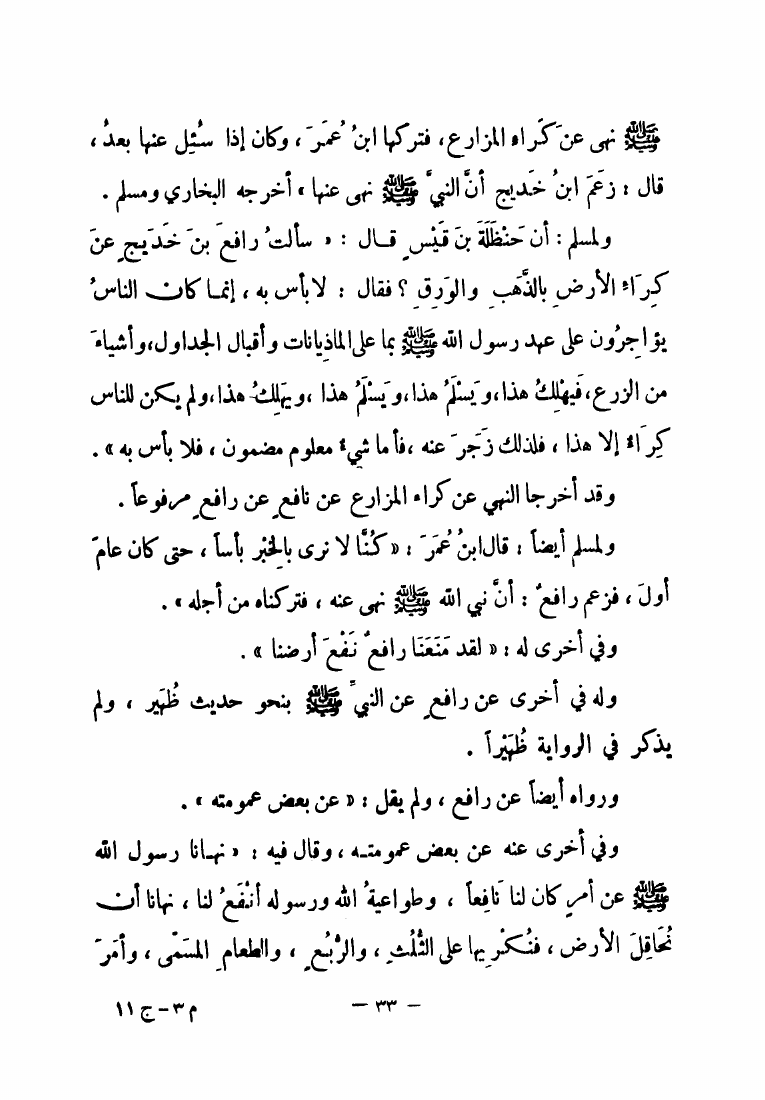 ﷺ نهى عن كَراء المزارع، فتركها ابنُ عُمَرَ، وكان إذا سُئِل عنها بعدُ،
قال: زَعَمَ ابنُ خَديج أنَّ النبيَّ ﷺ نهى عنها» أخرجه البخاري ومسلم.
ولمسلم: أن حَنْظَلَةَ بنَ قَيْسٍ قال: «سألتُ رافعَ بنَ خَدَيجٍ عنَ
كِرَاءِ الأرضِ بالذَّهَبِ والوَرِقِ؟ فقال: لا بأس به، إنمـا كان الناسُ
يؤاجِرُون على عهد رسول الله ﷺ بما على الماذِيانات وأقبال الجداول، وأشياءَ
من الزرع، فَيهْلِكُ هذا، ويَسْلَمُ هذا، ويَسْلَمُ هذا، ويَهلِكُ هذا، ولم يكن للناس
كِرَاءٌ إلا هذا، فلذلك زَجَرَ عنه، فأما شيءٌ معلوم مضمون، فلا بأس به».
وقد أخرجا النهي عن كراء المزارع عن نافعٍ عن رافعٍ مرفوعاً.
ولمسلم أيضاً: قال ابنُ عُمَرَ: «كُنَّا لا نرى بالخِبْر بأساً، حتى كان عامَ
أولَ، فزعم رافعٌ: أنَّ نبي الله ﷺ نهى عنه، فتركناه من أجله».
وفي أخرى له: «لقد مَنَعَنَا رافعٌ نَفْعَ أرضنا».
وله في أخرى عن رافعٍ عن النبيِّ ﷺ بنحو حديث ظُهَير، ولم
يذكر في الرواية ظُهَيْراً.
ورواه أيضاً عن رافع، ولم يقل: «عن بعض عمومته».
وفي أخرى عنه عن بعض عمومتـه، وقال فيه: «نهـانا رسول الله
ﷺ عن أمرٍ كان لنا نَافِعاً، وطواعيةُ الله ورسوله أنْفَعُ لنا، نهانا أن
نُحَاقِلَ الأرض، فنُكْرِيها على الثُّلُثِ، والرُّبُعِ، والطعامِ المسَمّى، وأمَرَ
– ٣٣ –
م ٣ – ج ١١